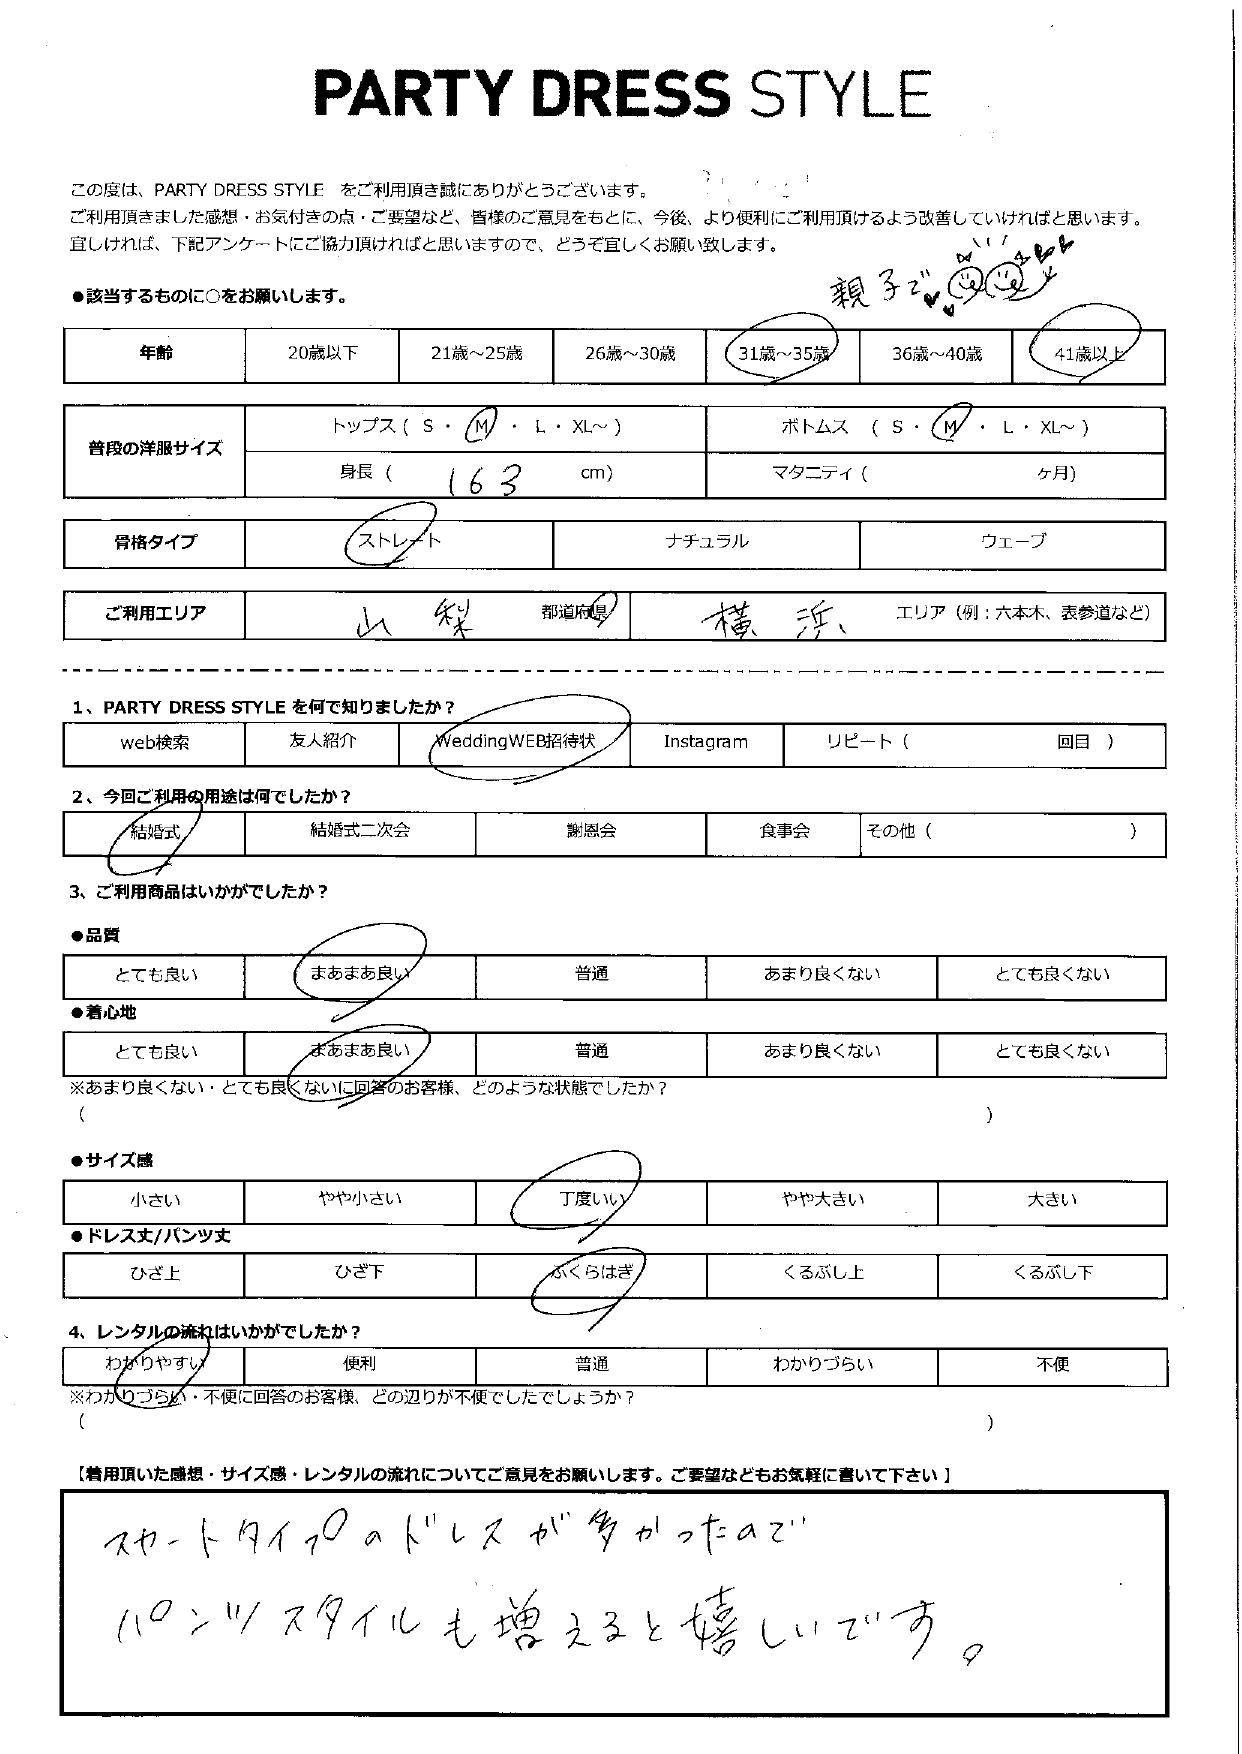 PARTY DRESS STYLE
この度は、PARTY DRESS STYLE をご利用頂き誠にありがとうございます。
ご利用頂きました感想・お気付きの点・ご要望など、皆様のご意見をもとに、今後、より便利にご利用頂けるよう改善していければと思います。
宜しければ、下記アンケートにご協力頂ければと思いますので、どうぞ宜しくお願い致します。
親子で
●該当するものに○をお願いします。
年齢 20歳以下 21歳～25歳 26歳～30歳 31歳～35歳 36歳～40歳 41歳以上
普段の洋服サイズ
トップス ( S ・ M ・ L ・ XL～ ) ボトムス ( S ・ M ・ L ・ XL～ )
身長 ( 163 cm) マタニティ ( ヶ月)
骨格タイプ ストレート ナチュラル ウェーブ
ご利用エリア 山梨 都道府県 横浜 エリア（例：六本木、表参道など）
1、PARTY DRESS STYLE を何で知りましたか？
web検索 友人紹介 WeddingWEB招待状 Instagram リピート ( 回目 )
2、今回ご利用の用途は何でしたか？
結婚式 結婚式二次会 謝恩会 食事会 その他 ( )
3、ご利用商品はいかがでしたか？
●品質
とても良い まあまあ良い 普通 あまり良くない とても良くない
●着心地
とても良い まあまあ良い 普通 あまり良くない とても良くない
※あまり良くない・とても良くないに回答のお客様、どのような状態でしたか？
( )
●サイズ感
小さい やや小さい 丁度いい やや大きい 大きい
●ドレス丈/パンツ丈
ひざ上 ひざ下 ふくらはぎ くるぶし上 くるぶし下
4、レンタルの流れはいかがでしたか？
わかりやすい 便利 普通 わかりづらい 不便
※わかりづらい・不便に回答のお客様、どの辺りが不便でしたでしょうか？
( )
【着用頂いた感想・サイズ感・レンタルの流れについてご意見をお願いします。ご要望などもお気軽に書いて下さい】
スカートタイプのドレスが多かったので
パンツスタイルも増えると嬉しいです。